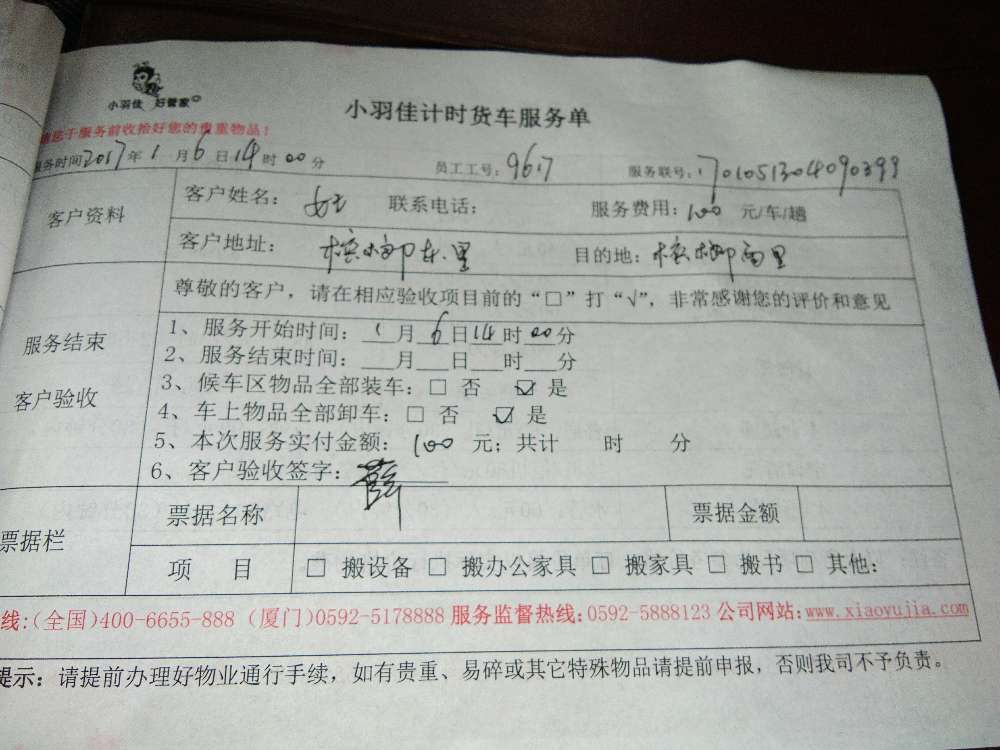 小羽佳 好管家
小羽佳计时货车服务单
请您于服务前收拾好您的贵重物品！
服务时间2017年1月6日14时00分 员工工号：9617 服务联号：
客户资料
客户姓名： 联系电话： 服务费用：100元/车/趟
客户地址：槟榔东里 目的地：槟榔西里
服务结束
客户验收
尊敬的客户，请在相应验收项目前的“□”打“√”，非常感谢您的评价和意见
1、服务开始时间：1月6日14时00分
2、服务结束时间：___月___日___时___分
3、候车区物品全部装车：□ 否 ☑ 是
4、车上物品全部卸车：□ 否 ☑ 是
5、本次服务实付金额：100元；共计 时 分
6、客户验收签字：
票据栏
票据名称 票据金额
项 目 □ 搬设备 □ 搬办公家具 □ 搬家具 □ 搬书 □ 其他：
线：(全国)400-6655-888 (厦门)0592-5178888 服务监督热线：0592-5888123 公司网站：www.xiaoyujia.com
提示：请提前办理好物业通行手续，如有贵重、易碎或其它特殊物品请提前申报，否则我司不予负责。